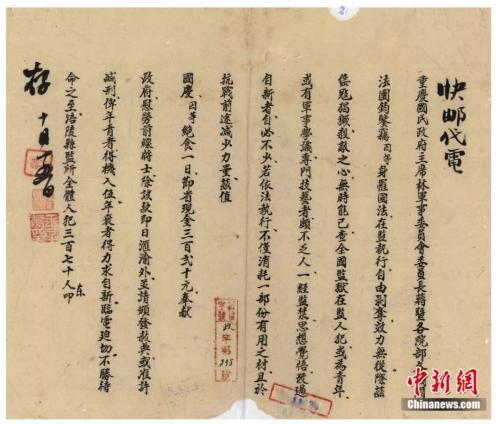 快邮代電
重慶國民政府主席林軍事委員會委員長蔣暨各院部
法團鈞鑒竊因等身罹國法在監執行自由剝奪效力無從際茲
倭寇猖獗殺敵之心無時能已查全國監獄在監人犯或為青年
或有軍事學識專門技藝者頗不乏人一經監禁思想覺悟改過
自新者自必不少若依法執行不僅消耗一部份有用之材且於
抗戰前途減少力量茲值
國慶因等絶食一日節省現金三百弍十元奉献
政府慰勞前線將士除該款即日滙渝外並請頒發赦典或准許
減刑俾年青者得機入伍年衰者得力求自新臨電迫切不勝待
命之至涪陵縣監所全體人犯三百七十人叩
东
存 十月
政字
395
2
中新网
Chinanews.com